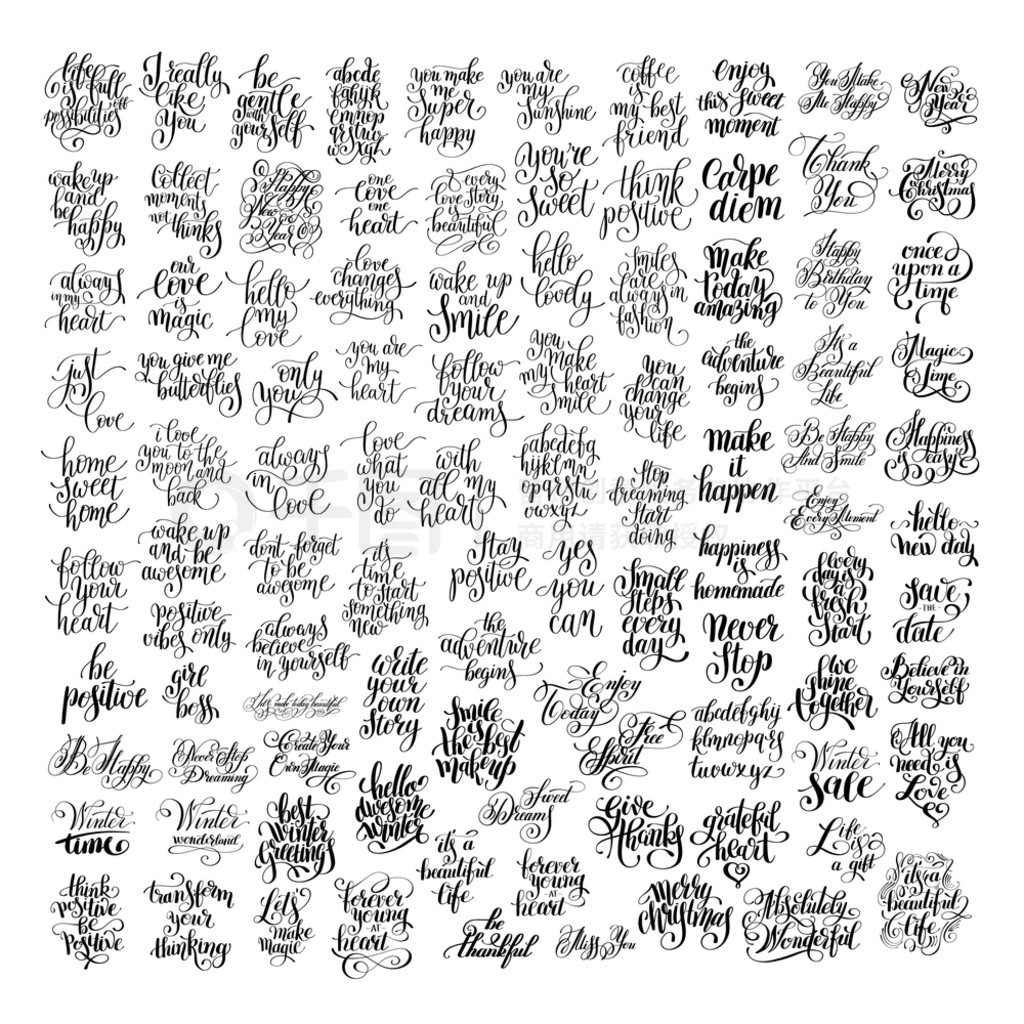 life
is full
of
possibilities
I really
like
you
be
gentle
with
yourself
abcde
fghijk
lmnop
qrstuv
wxyz
you make
me
super
happy
you are
my
Sunshine
coffee
is
my best
friend
enjoy
this sweet
moment
You Make
Me Happy
New
Year
wake up
and
be
happy
Collect
moments
not
things
Happy
New
Year
one
love
one
heart
every
love story
is
beautiful
you're
so
sweet
think
positive
Carpe
diem
Thank
You
Merry
Christmas
always
in my
heart
our
love
is
magic
hello
my
love
love
changes
everything
wake up
and
Smile
hello
lovely
Smiles
are
always in
fashion
make
today
amazing
Happy
Birthday
to You
once
upon a
time
just
love
you give me
butterflies
only
you
you are
my
heart
follow
your
dreams
you
make
my heart
smile
you
can
change
your
life
the
adventure
begins
It's a
Beautiful
Life
Magic
Time
home
sweet
home
i love
you to the
moon and
back
always
in
love
love
what
you
do
with
all my
heart
abcdefg
hijklmn
opqrstu
vwxyz
Stop
dreaming
Start
doing
make
it
happen
Be Happy
And Smile
Happiness
is easy
follow
your
heart
wake up
and be
awesome
don't forget
to be
awesome
it's
time
to start
something
new
Stay
positive
yes
you
can
Small
steps
every
day
happiness
is
homemade
Enjoy
Every Moment
hello
new day
positive
vibes only
always
believe
in yourself
the
adventure
begins
never
Stop
every
day is
a
fresh
Start
Save
THE
date
be
positive
girl
boss
write
your
own
story
Enjoy
Today
abcdefghij
klmnopqrs
tuvwxyz
we
shine
together
Believe in
Yourself
Be Happy
Never Stop
Dreaming
Create Your
Own Magic
Smile
is
the best
makeup
Free
Spirit
Winter
Sale
All you
need is
Love
Winter
time
Winter
wonderland
best
winter
Greetings
hello
awesome
winter
Sweet
Dreams
Give
Thanks
grateful
heart
Life
is
a gift
think
positive
be
Positive
transform
your
thinking
Let's
make
magic
forever
young
AT
heart
it's a
beautiful
life
forever
young
AT
heart
be
thankful
Miss You
Merry
christmas
Absolutely
Wonderful
it's a
beautiful
life